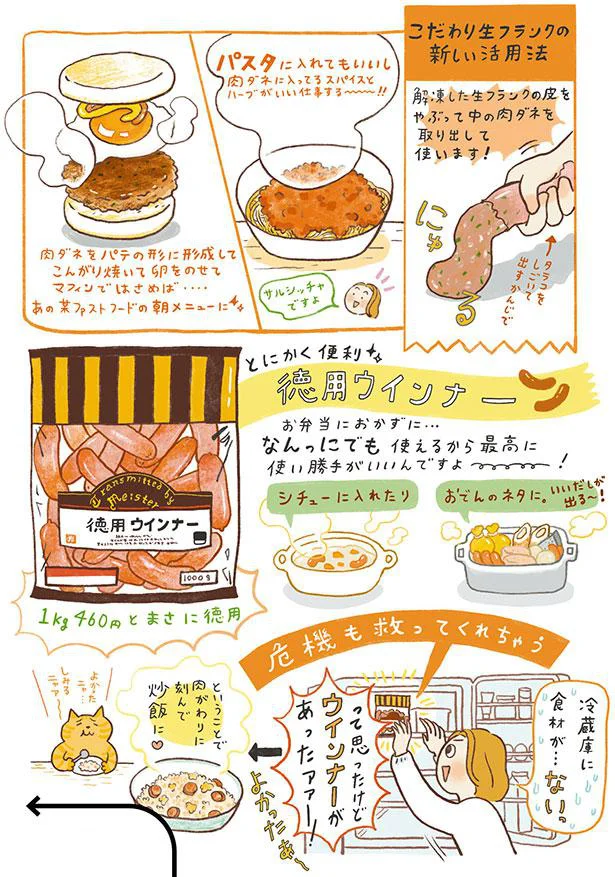 こだわり生フランクの
新しい活用法
解凍した生フランクの皮を
やぶって中の肉ダネを
取り出して
使います!
にゅ
る
←タラコを
しごいて
出すかんじで
パスタに入れてもいいし
肉ダネに入ってるスパイスと
ハーブがいい仕事する〜〜〜!!
サルシッチャ
ですよ
肉ダネをパテの形に形成して
こんがり焼いて卵をのせて
マフィンではさめば・・・・
あの某ファストフードの朝メニューに
とにかく便利
徳用ウインナー
お弁当におかずに…
なんっにでも使えるから最高に
使い勝手がいいんですよ〜〜〜!
シチューに入れたり
おでんのネタに。いいだしが
出る〜!
Transmitted by
Meister
徳用ウインナー
1000g
1kg460円とまさに徳用
危機も救ってくれちゃう
冷蔵庫に
食材が…
ないっ
って思ったけど
ウインナーが
あったアァー!
よかったぁ〜
ということで
肉がわりに
刻んで
炒飯に
よかった
ニャ…
しみる
ニャァ〜